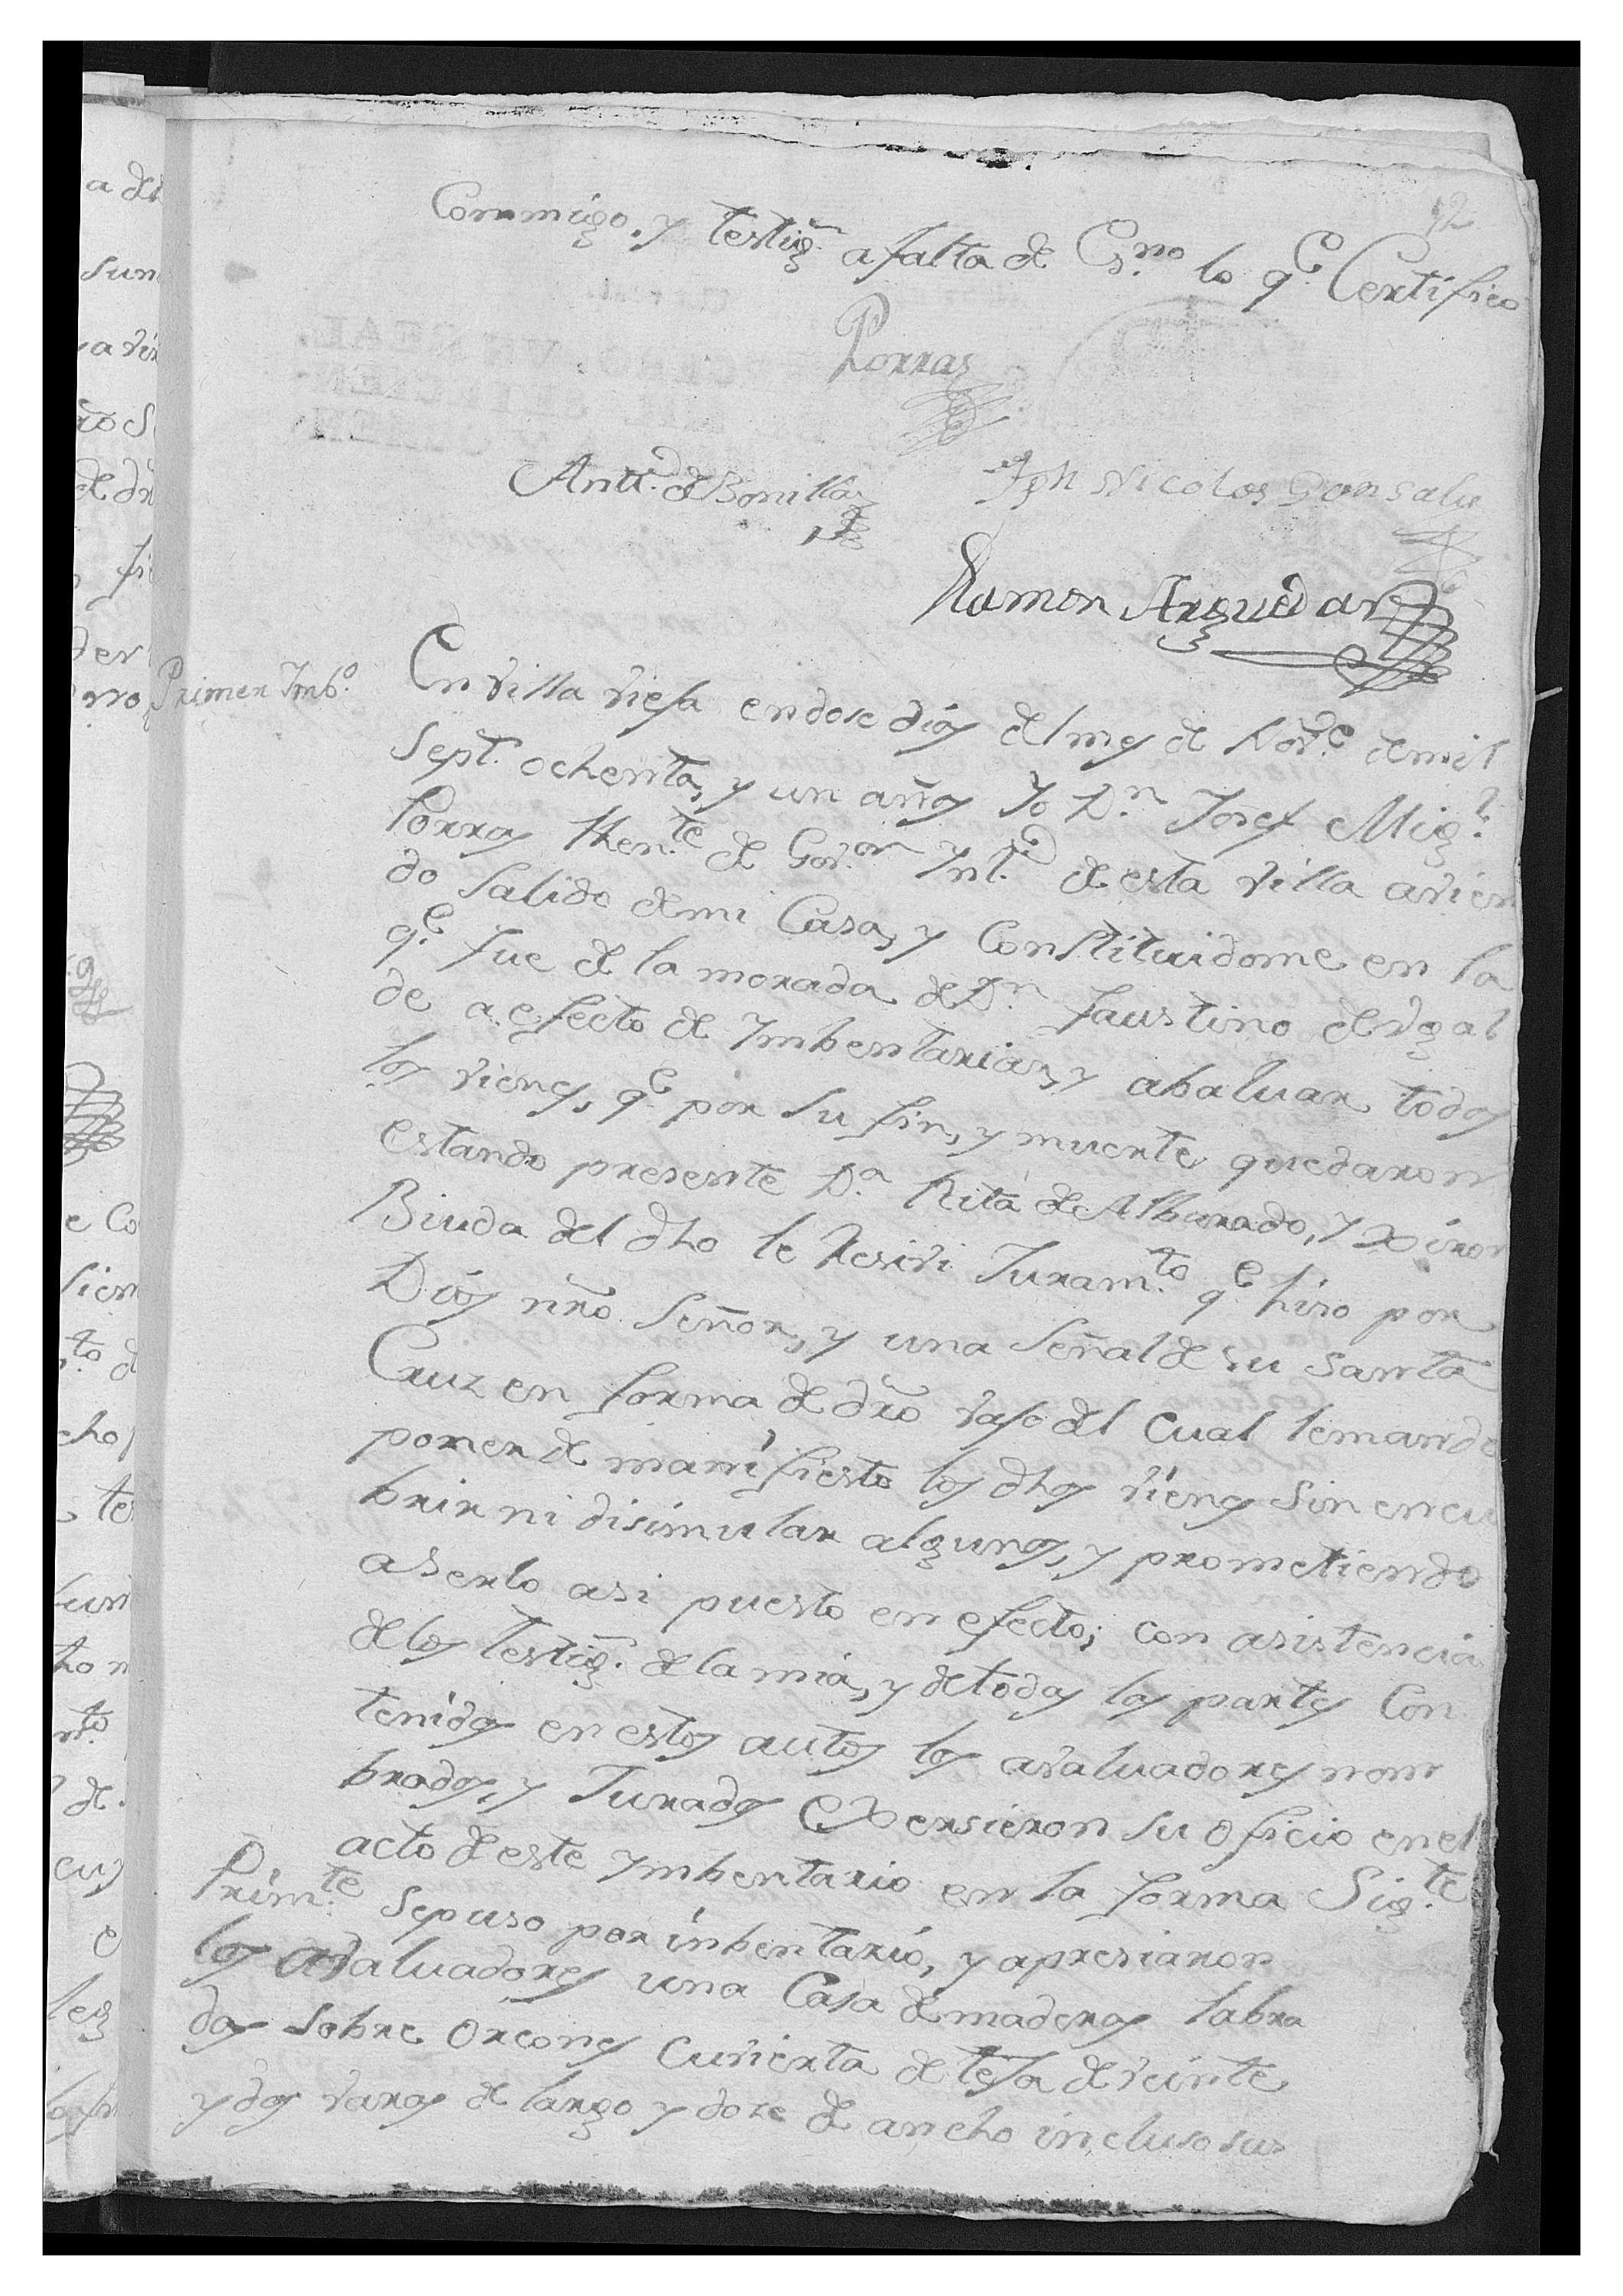 12
Commigo, y testig.ˢ a falta de Es.ⁿᵒ lo q.ᵉ Certifico
Porras
Antt.º de Bonilla
Jph Nicolas Gonsales
Ramon Arguedas
Primer Imb.º
En villa vieja en dose dias del mes de Nov.ᵉ de mil
Sept.ˢ ochenta, y un años Yo D.ⁿ Josef Mig.ˡ
Porras Then.ᵗᵉ de Gov.ᵒʳ Int.º de esta villa avien
do Salido de mi Casa, y Constituidome en la
q.ᵉ fue de la morada de D.ⁿ Faustino de Ugal
de a efecto de Imbentariar, y abaluar todos
los vienes, q.ᵉ por su fin, y muerte quedaron
estando presente D.ª Rita de Albarado, y Xiron
Biuda del dho le Resivi Juram.ᵗᵒ q.ᵉ hiso por
Dios nr̃o Señor, y una Señal de su santa
Cruz en forma de dr̃o vajo del Cual le mande
poner de manifiesto los dhos vienes sin encu
brir ni disimular algunos, y prometiendo
aserlo asi puesto en efecto; con asistencia
de los testig.ˢ de la mia, y de todas las partes Con
tenidas en estos autos los avaluadores nom
brados, y Jurados Exersieron su oficio en el
acto de este Imbentario en la forma Sig.ᵗᵉ
Prim.ᵗᵉ Se puso por inbentario, y apresiaron
los avaluadores una Casa de maderas labra
das sobre Orcones Cuvierta de teja de veinte
y dos varas de largo y dose de ancho incluso sus